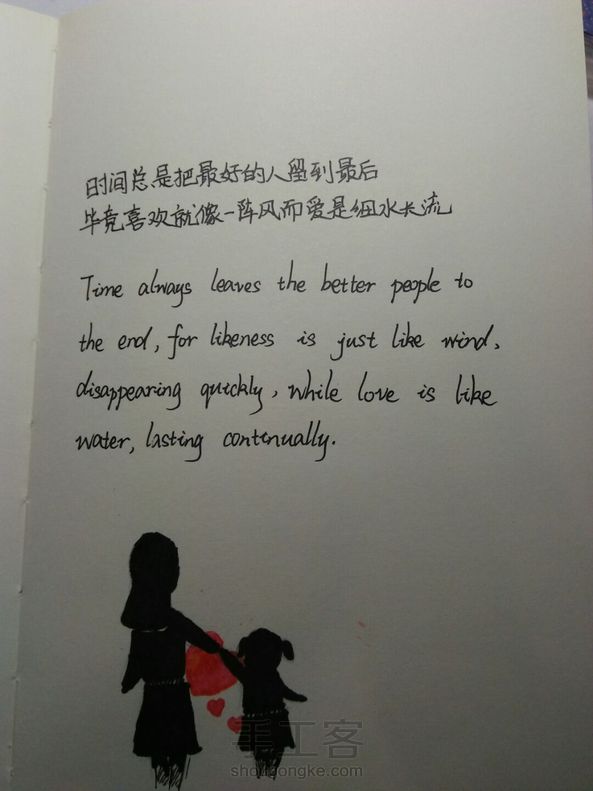 时间总是把最好的人留到最后
毕竟喜欢就像一阵风而爱是细水长流
Time always leaves the better people to
the end, for likeness is just like wind,
disappearing quickly, while love is like
water, lasting continually.
手工客
shougongke.com